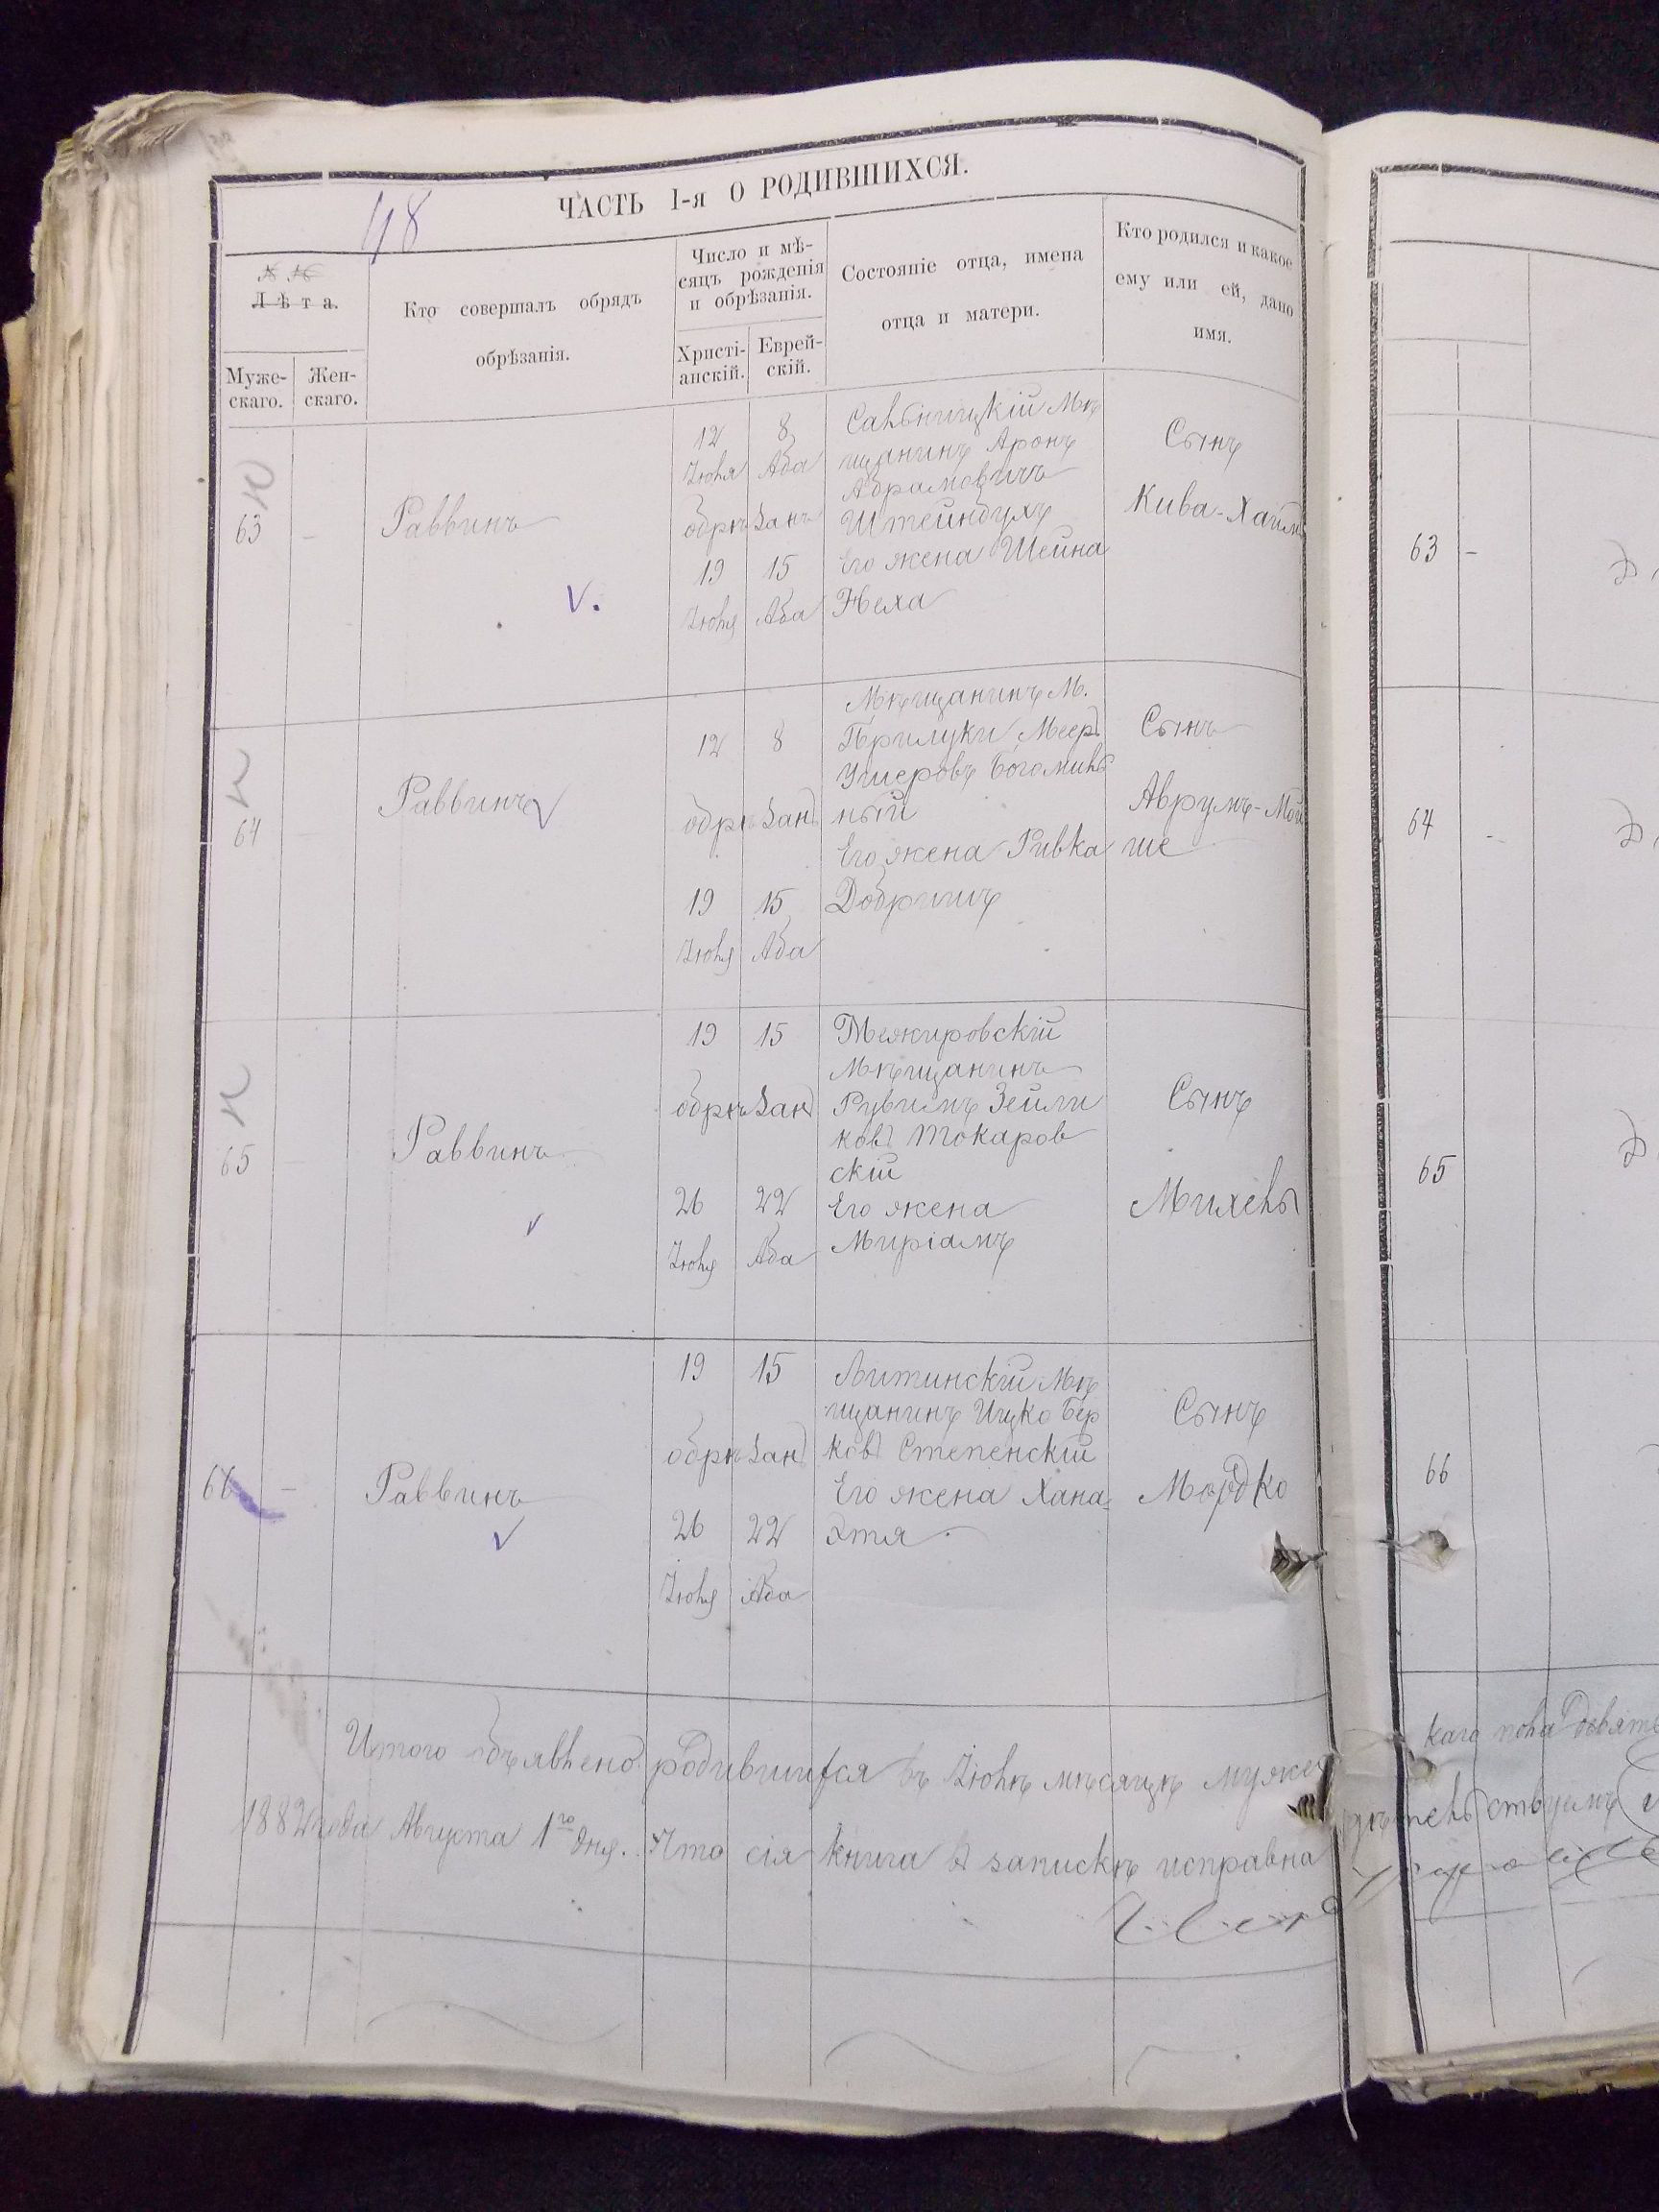 48
ЧАСТЬ I-я О РОДИВШИХСЯ.
Лѣта.
Муже-
скаго.
Жен-
скаго.
Кто совершалъ обрядъ
обрѣзанія.
Число и мѣ-
сяцъ рожденія
и обрѣзанія.
Христі-
анскій.
Еврей-
скій.
Состояніе отца, имена
отца и матери.
Кто родился и какое
ему или ей, дано
имя.
63
-
Раввинъ
12 8
Іюля Аба
обрѣзанъ
19 15
Іюля Аба
Сальницкій Мѣ
щанинъ Аронъ
Абрамовичъ
Штейнбухъ
Его жена Шейна
Неха
Сынъ
Кива-Хаимъ
63 -
64
Раввинъ
12 8
обрѣзанъ
19 15
Іюля Аба
Мѣщанинъ М.
Прилуки Меер
Ушеровъ Богомиль
ный
Его жена Ривка
Добришъ
Сынъ
Аврумъ-Мой
ше
64 -
65
Раввинъ
19 15
обрѣзанъ
26 22
Іюля Аба
Межировскій
Мѣщанинъ
Рувимъ Зейли
ковъ Токаров
скій
Его жена
Миріамъ
Сынъ
Михель
65
66 -
Раввинъ
19 15
обрѣзанъ
26 22
Іюля Аба
Литинскій Мѣ
щанинъ Ицко Бер
ковъ Степенскій
Его жена Хана
Этя
Сынъ
Мордко
66
Итого объявлено родившихся въ Іюлѣ мѣсяцѣ мужес
каго пола девять
1882 года Августа 1го дня. Что сія книга въ запискѣ исправна